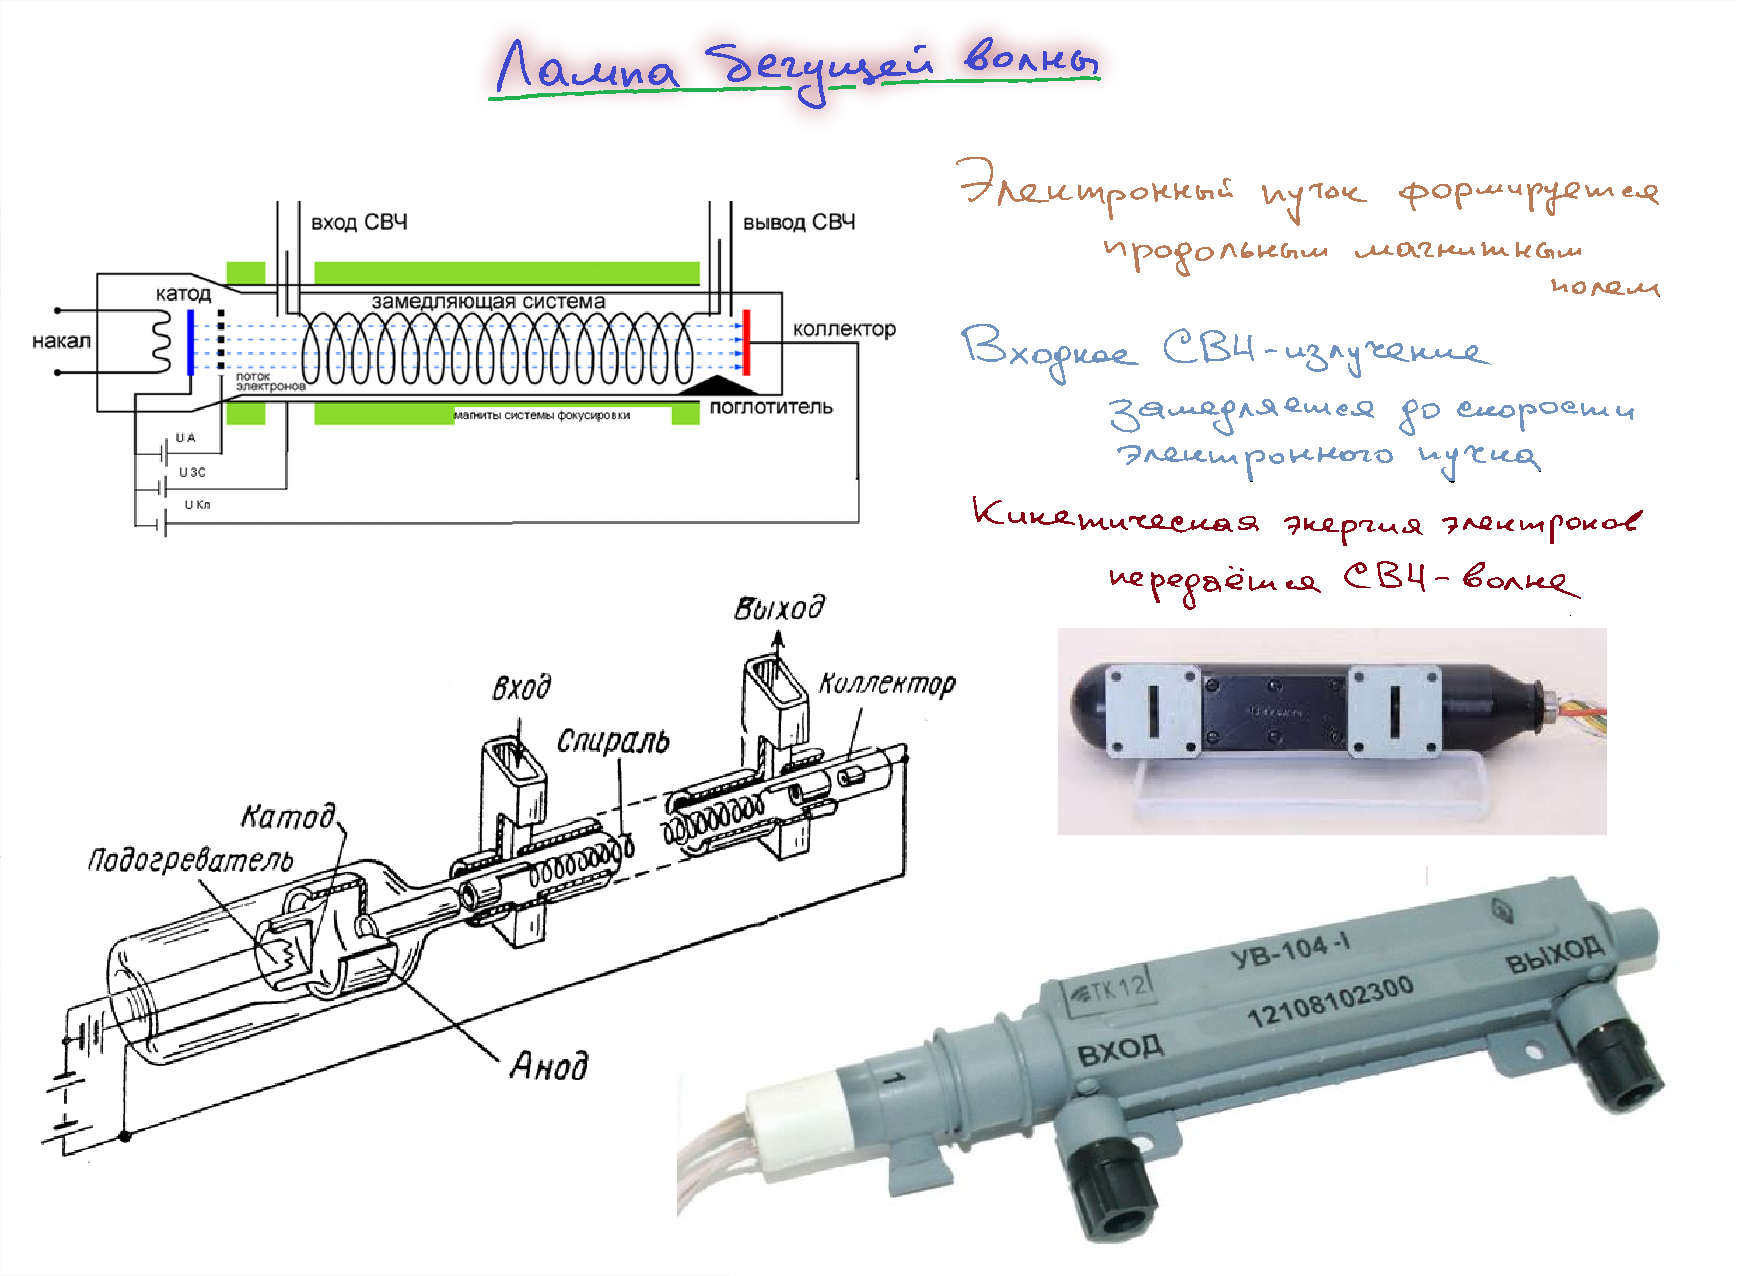 Лампа бегущей волны
вход СВЧ
вывод СВЧ
катод
замедляющая система
накал
коллектор
поток
электронов
магниты системы фокусировки
поглотитель
U А
U ЗС
U Кл
Электронный пучок формируется
продольным магнитным
полем
Входное СВЧ-излучение
замедляется до скорости
электронного пучка
Кинетическая энергия электронов
передаётся СВЧ-волне
Выход
Вход
Коллектор
Спираль
Катод
Подогреватель
Анод
УВ-104-I
ТК12
ВЫХОД
12108102300
ВХОД
1